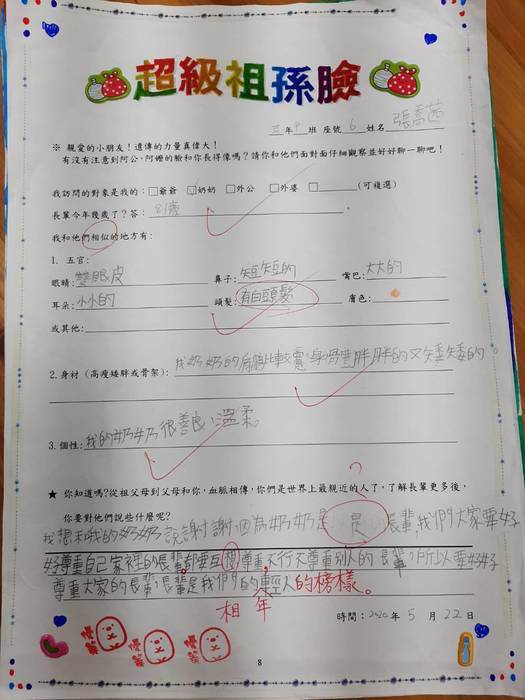 超級祖孫臉
三年 班 座號 6 姓名 張喬茜
※ 親愛的小朋友！遺傳的力量真偉大！
有沒有注意到阿公、阿嬤的臉和你長得像嗎？請你和他們面對面仔細觀察並好好聊一聊吧！
我訪問的對象是我的：□爺爺 □奶奶 □外公 □外婆 □ (可複選)
長輩今年幾歲了？答： 81歲
我和他們相似的地方有：
1. 五官：
眼睛：雙眼皮 鼻子：短短的 嘴巴：大大的
耳朵：小小的 頭髮：有白頭髮 膚色：
或其他：
2. 身材 (高瘦矮胖或骨架)：我奶奶的肩膀比較寬，身 胖胖的又矮矮的。
3. 個性：我的奶奶很善良、溫柔。
★ 你知道嗎？從祖父母到父母和你，血脈相傳，你們是世界上最親近的人了，了解長輩更多後，
你要對他們說些什麼呢？
？
我想和我的奶奶說謝謝，因為奶奶是 是長輩，我們大家要好
好尊重自己家裡的長輩，都要互想尊重，不行不尊重別人的長輩，所以要好好
尊重大家的長輩，長輩是我們的輕人的榜樣。
相 年
時間：2020 年 5 月 22 日
優等 優等 優等
8